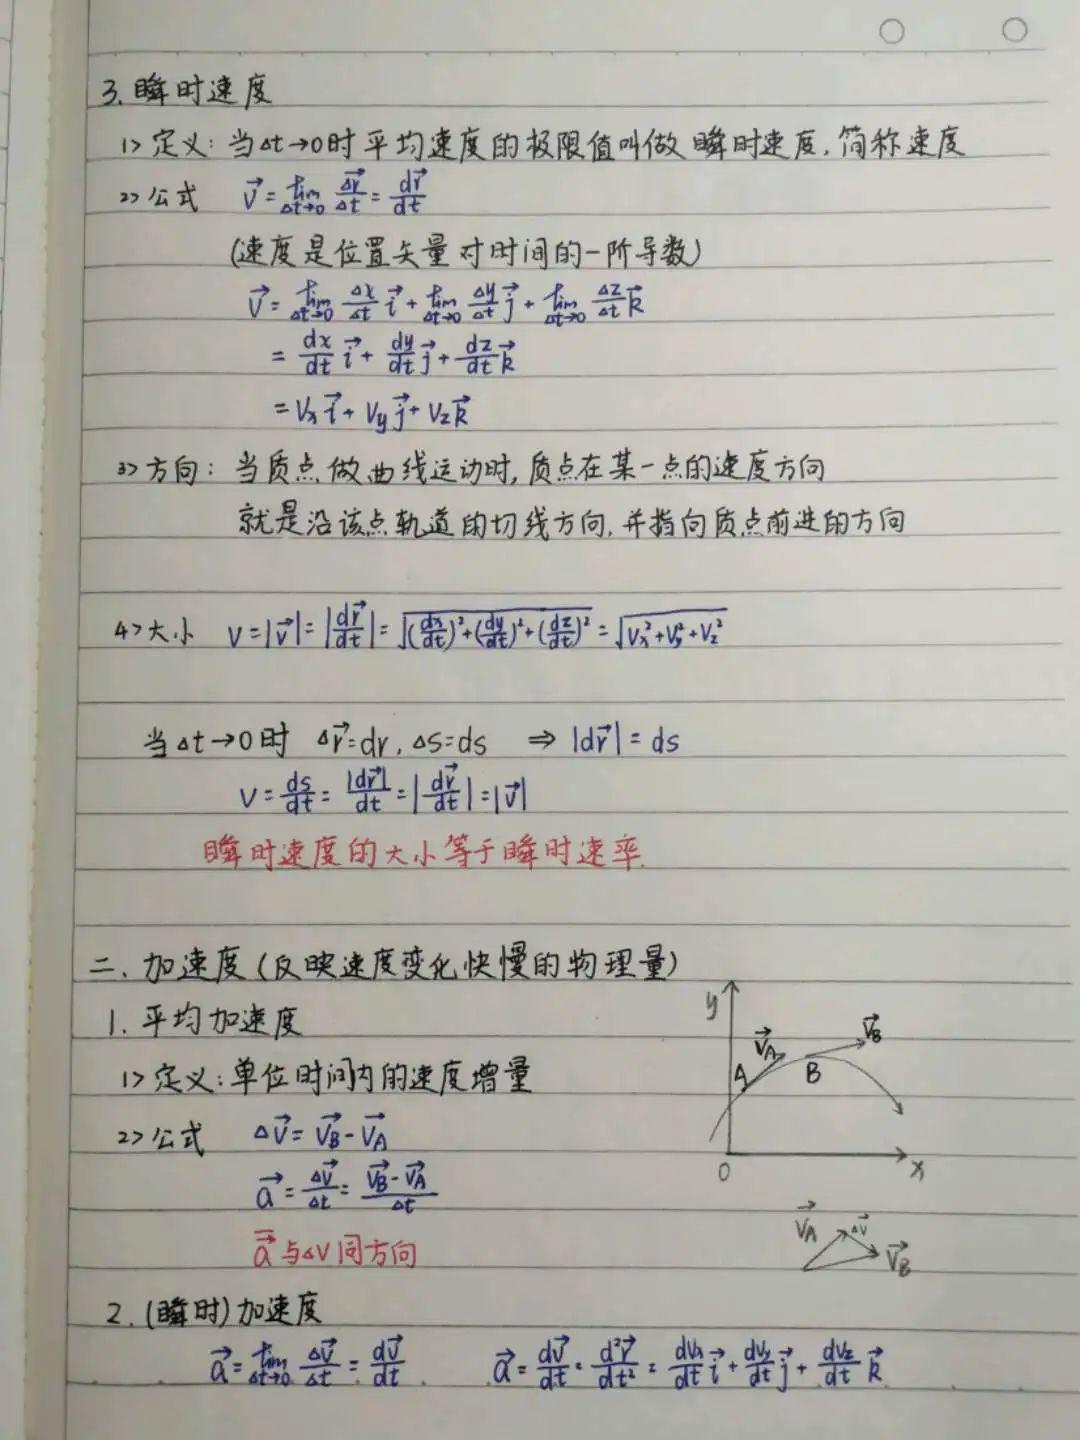 3. 瞬时速度
1> 定义: 当Δt→0时平均速度的极限值叫做瞬时速度, 简称速度
2> 公式 v⃗ = lim(Δt→0) Δr⃗/Δt = dr⃗/dt
(速度是位置矢量对时间的一阶导数)
v⃗ = lim(Δt→0) Δx/Δt i⃗ + lim(Δt→0) Δy/Δt j⃗ + lim(Δt→0) Δz/Δt k⃗
= dx/dt i⃗ + dy/dt j⃗ + dz/dt k⃗
= Vx i⃗ + Vy j⃗ + Vz k⃗
3> 方向: 当质点做曲线运动时, 质点在某一点的速度方向
就是沿该点轨道的切线方向, 并指向质点前进的方向
4> 大小 V = |v⃗| = |dr⃗/dt| = √((dx/dt)² + (dy/dt)² + (dz/dt)²) = √(Vx² + Vy² + Vz²)
当Δt→0时 Δr⃗ = dr, Δs = ds ⇒ |dr⃗| = ds
V = ds/dt = |dr⃗|/dt = |dr⃗/dt| = |v⃗|
瞬时速度的大小等于瞬时速率.
二. 加速度 (反映速度变化快慢的物理量)
1. 平均加速度
1> 定义: 单位时间内的速度增量
2> 公式 ΔV⃗ = V⃗B - V⃗A
a⃗ = ΔV⃗/Δt = (V⃗B - V⃗A)/Δt
a⃗与ΔV同方向
y
V⃗A
V⃗B
A
B
O
x
V⃗A
ΔV⃗
V⃗B
2. (瞬时) 加速度
a⃗ = lim(Δt→0) ΔV⃗/Δt = dV⃗/dt a⃗ = dV⃗/dt = d²r⃗/dt² = dVx/dt i⃗ + dVy/dt j⃗ + dVz/dt k⃗